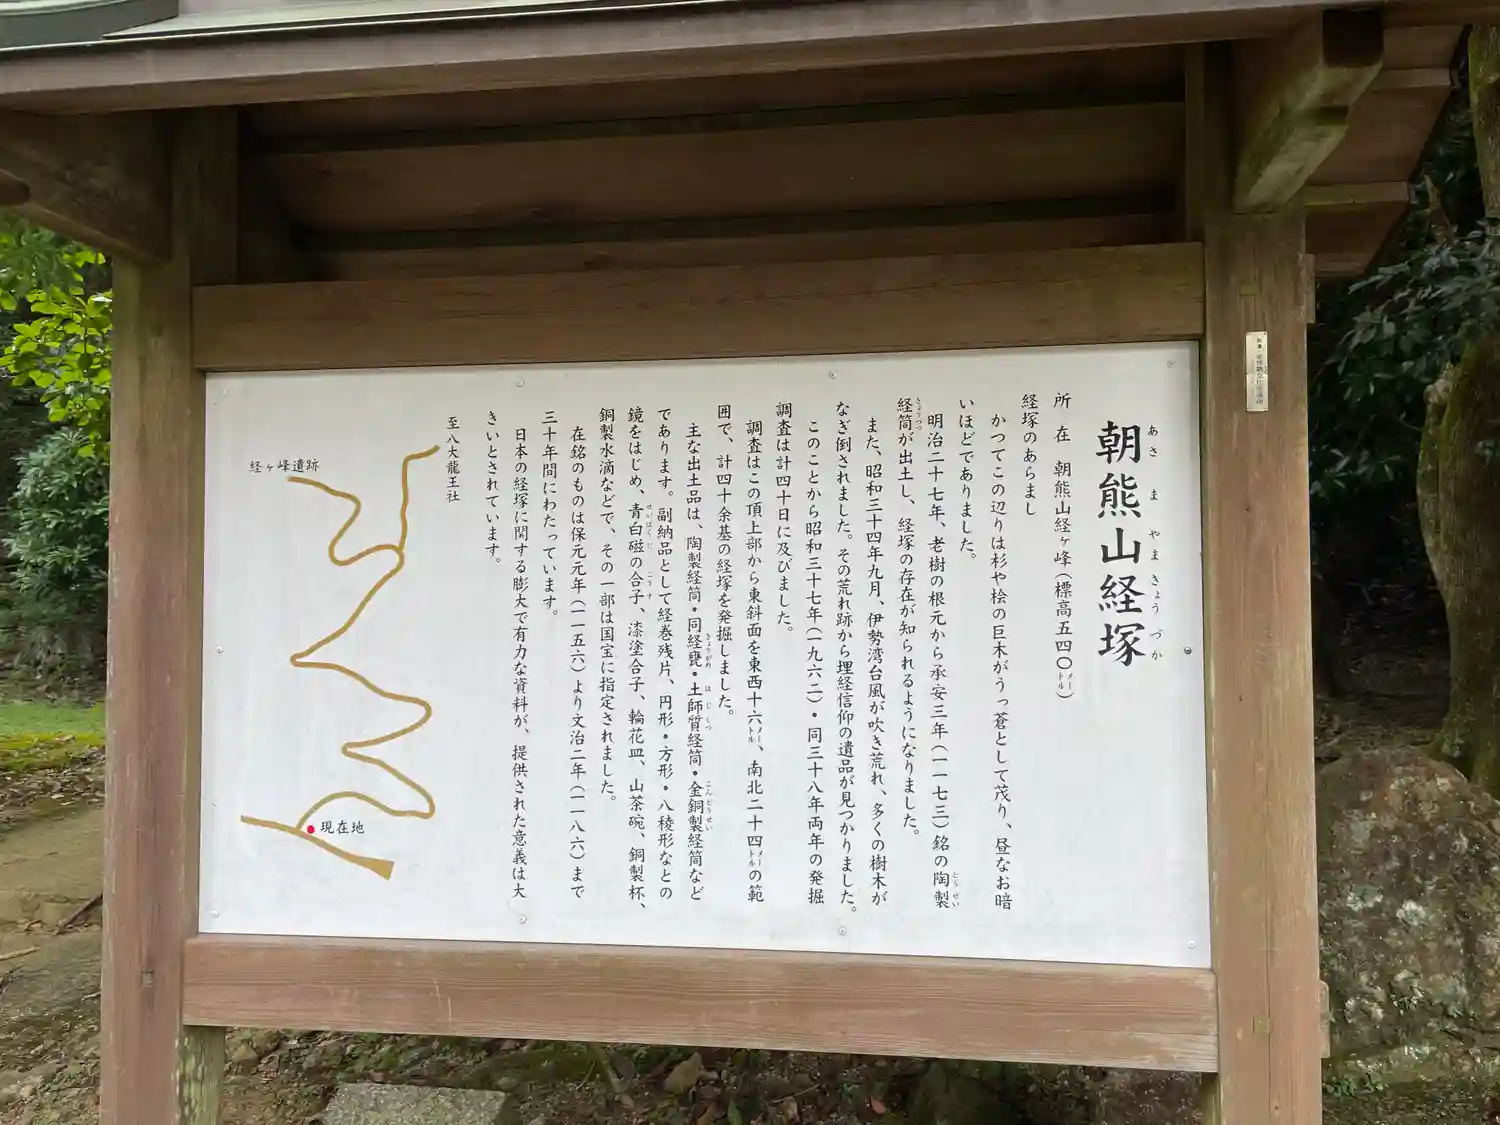 朝熊山経塚
あさ ま やま きょう づか
所在 朝熊山経ヶ峰(標高五四〇メートル)
経塚のあらまし
かつてこの辺りは杉や桧の巨木がうっ蒼として茂り、昼なお暗
いほどでありました。
明治二十七年、老樹の根元から承安三年(一一七三)銘の陶製
とうせい
経筒が出土し、経塚の存在が知られるようになりました。
きょうづつ
また、昭和三十四年九月、伊勢湾台風が吹き荒れ、多くの樹木が
なぎ倒されました。その荒れ跡から埋経信仰の遺品が見つかりました。
このことから昭和三十七年(一九六二)・同三十八年両年の発掘
調査は計四十日に及びました。
調査はこの頂上部から東斜面を東西十六メートル、南北二十四メートルの範
囲で、計四十余基の経塚を発掘しました。
主な出土品は、陶製経筒・同経甕・土師質経筒・金銅製経筒など
きょうがめ はじしつ こんどうせい
であります。副納品として経巻残片、円形・方形・八稜形などの
鏡をはじめ、青白磁の合子、漆塗合子、輪花皿、山茶碗、銅製杯、
せいはくじ ごうす
銅製水滴などで、その一部は国宝に指定されました。
在銘のものは保元元年(一一五六)より文治二年(一一八六)まで
三十年間にわたっています。
日本の経塚に関する膨大で有力な資料が、提供された意義は大
きいとされています。
至八大龍王社
経ヶ峰遺跡
現在地